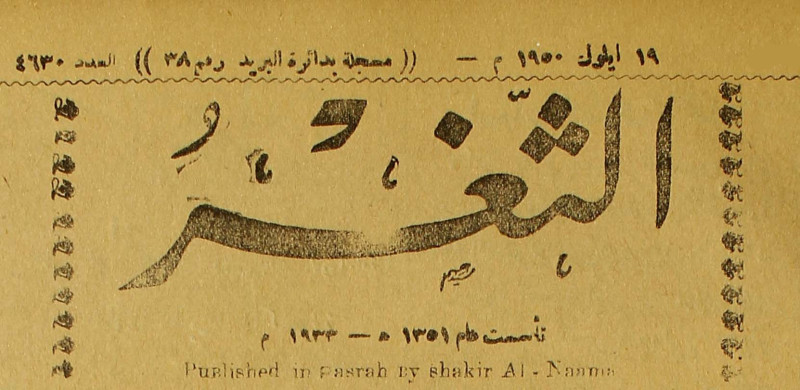 ١٩ ايلول ١٩٥٠ م — (( مسجلة بدائرة البريد رقم ٣٨ )) العدد ٤٦٣٠
الثَّغْرُ
تأسست عام ١٣٥١ ه — ١٩٣٣ م
Published in Basrah By shakir Al - Naama